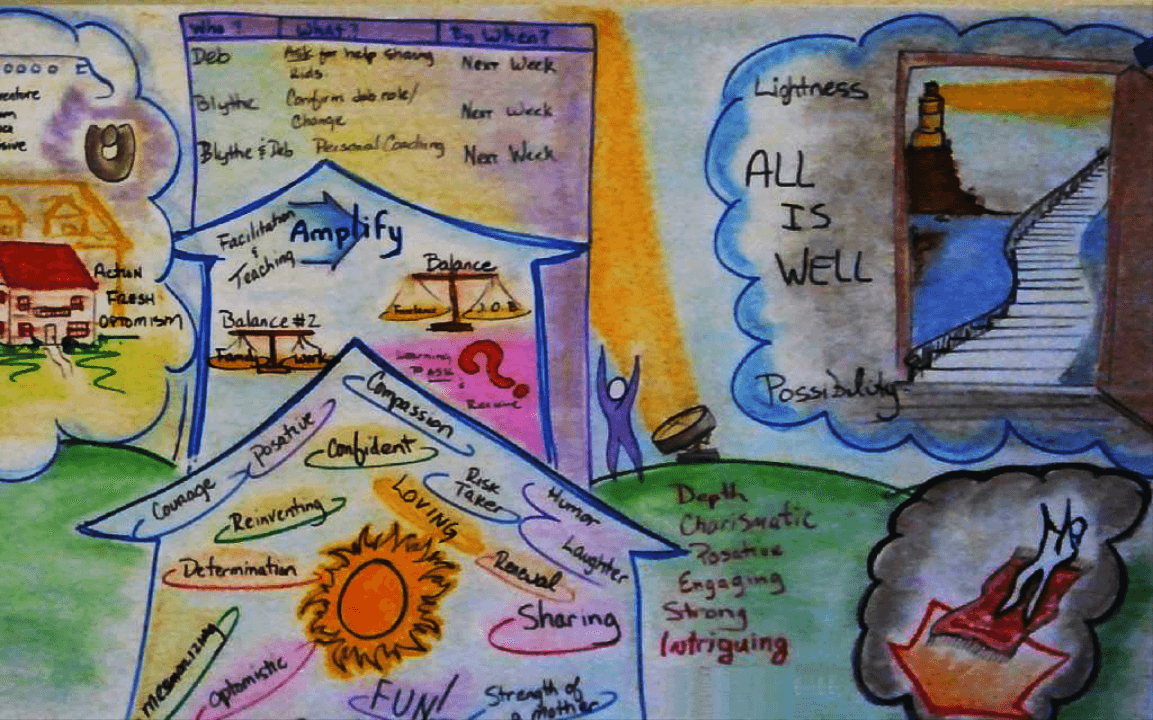 Who?
What?
By When?
Deb
Ask for help sharing
kids
Next Week
Blythe
Confirm job role/
Change
Next Week
Blythe & Deb
Personal Coaching
Next Week
Facilitation
&
Teaching
Amplify
Balance
Freelance
J.O.B
Balance #2
Family
work
Learning
to ASK
&
Receive
Action
Fresh
Optomism
Lightness
ALL
IS
WELL
Possibility
Compassion
Posative
Confident
Courage
Reinventing
LOVING
Risk
Taker
Humor
Laughter
Determination
Renewal
Sharing
Mesmorizing
Optomistic
FUN!
Strength of
a mother
Depth
Charismatic
Posative
Engaging
Strong
Intriguing